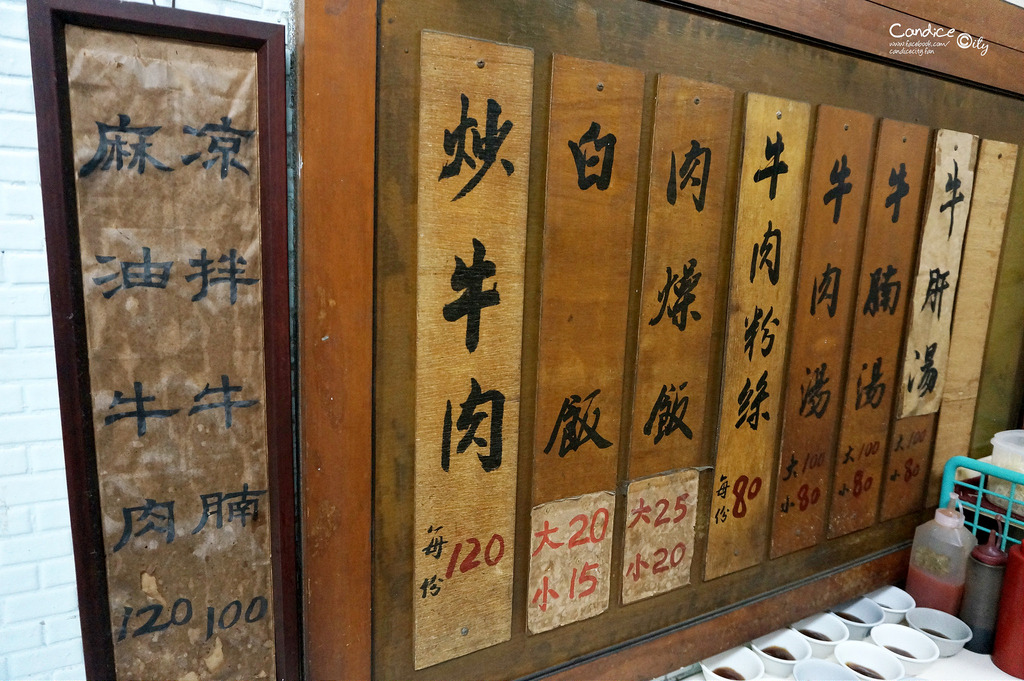 涼拌牛腩 100
麻油牛肉 120
炒牛肉
每份 120
白飯
大20
小15
肉燥飯
大25
小20
牛肉粉絲
每份 80
牛肉湯
大100
小80
牛腩湯
大100
小80
牛肝湯
大100
小80
Candice City
www.facebook.com/
candicecity.fan